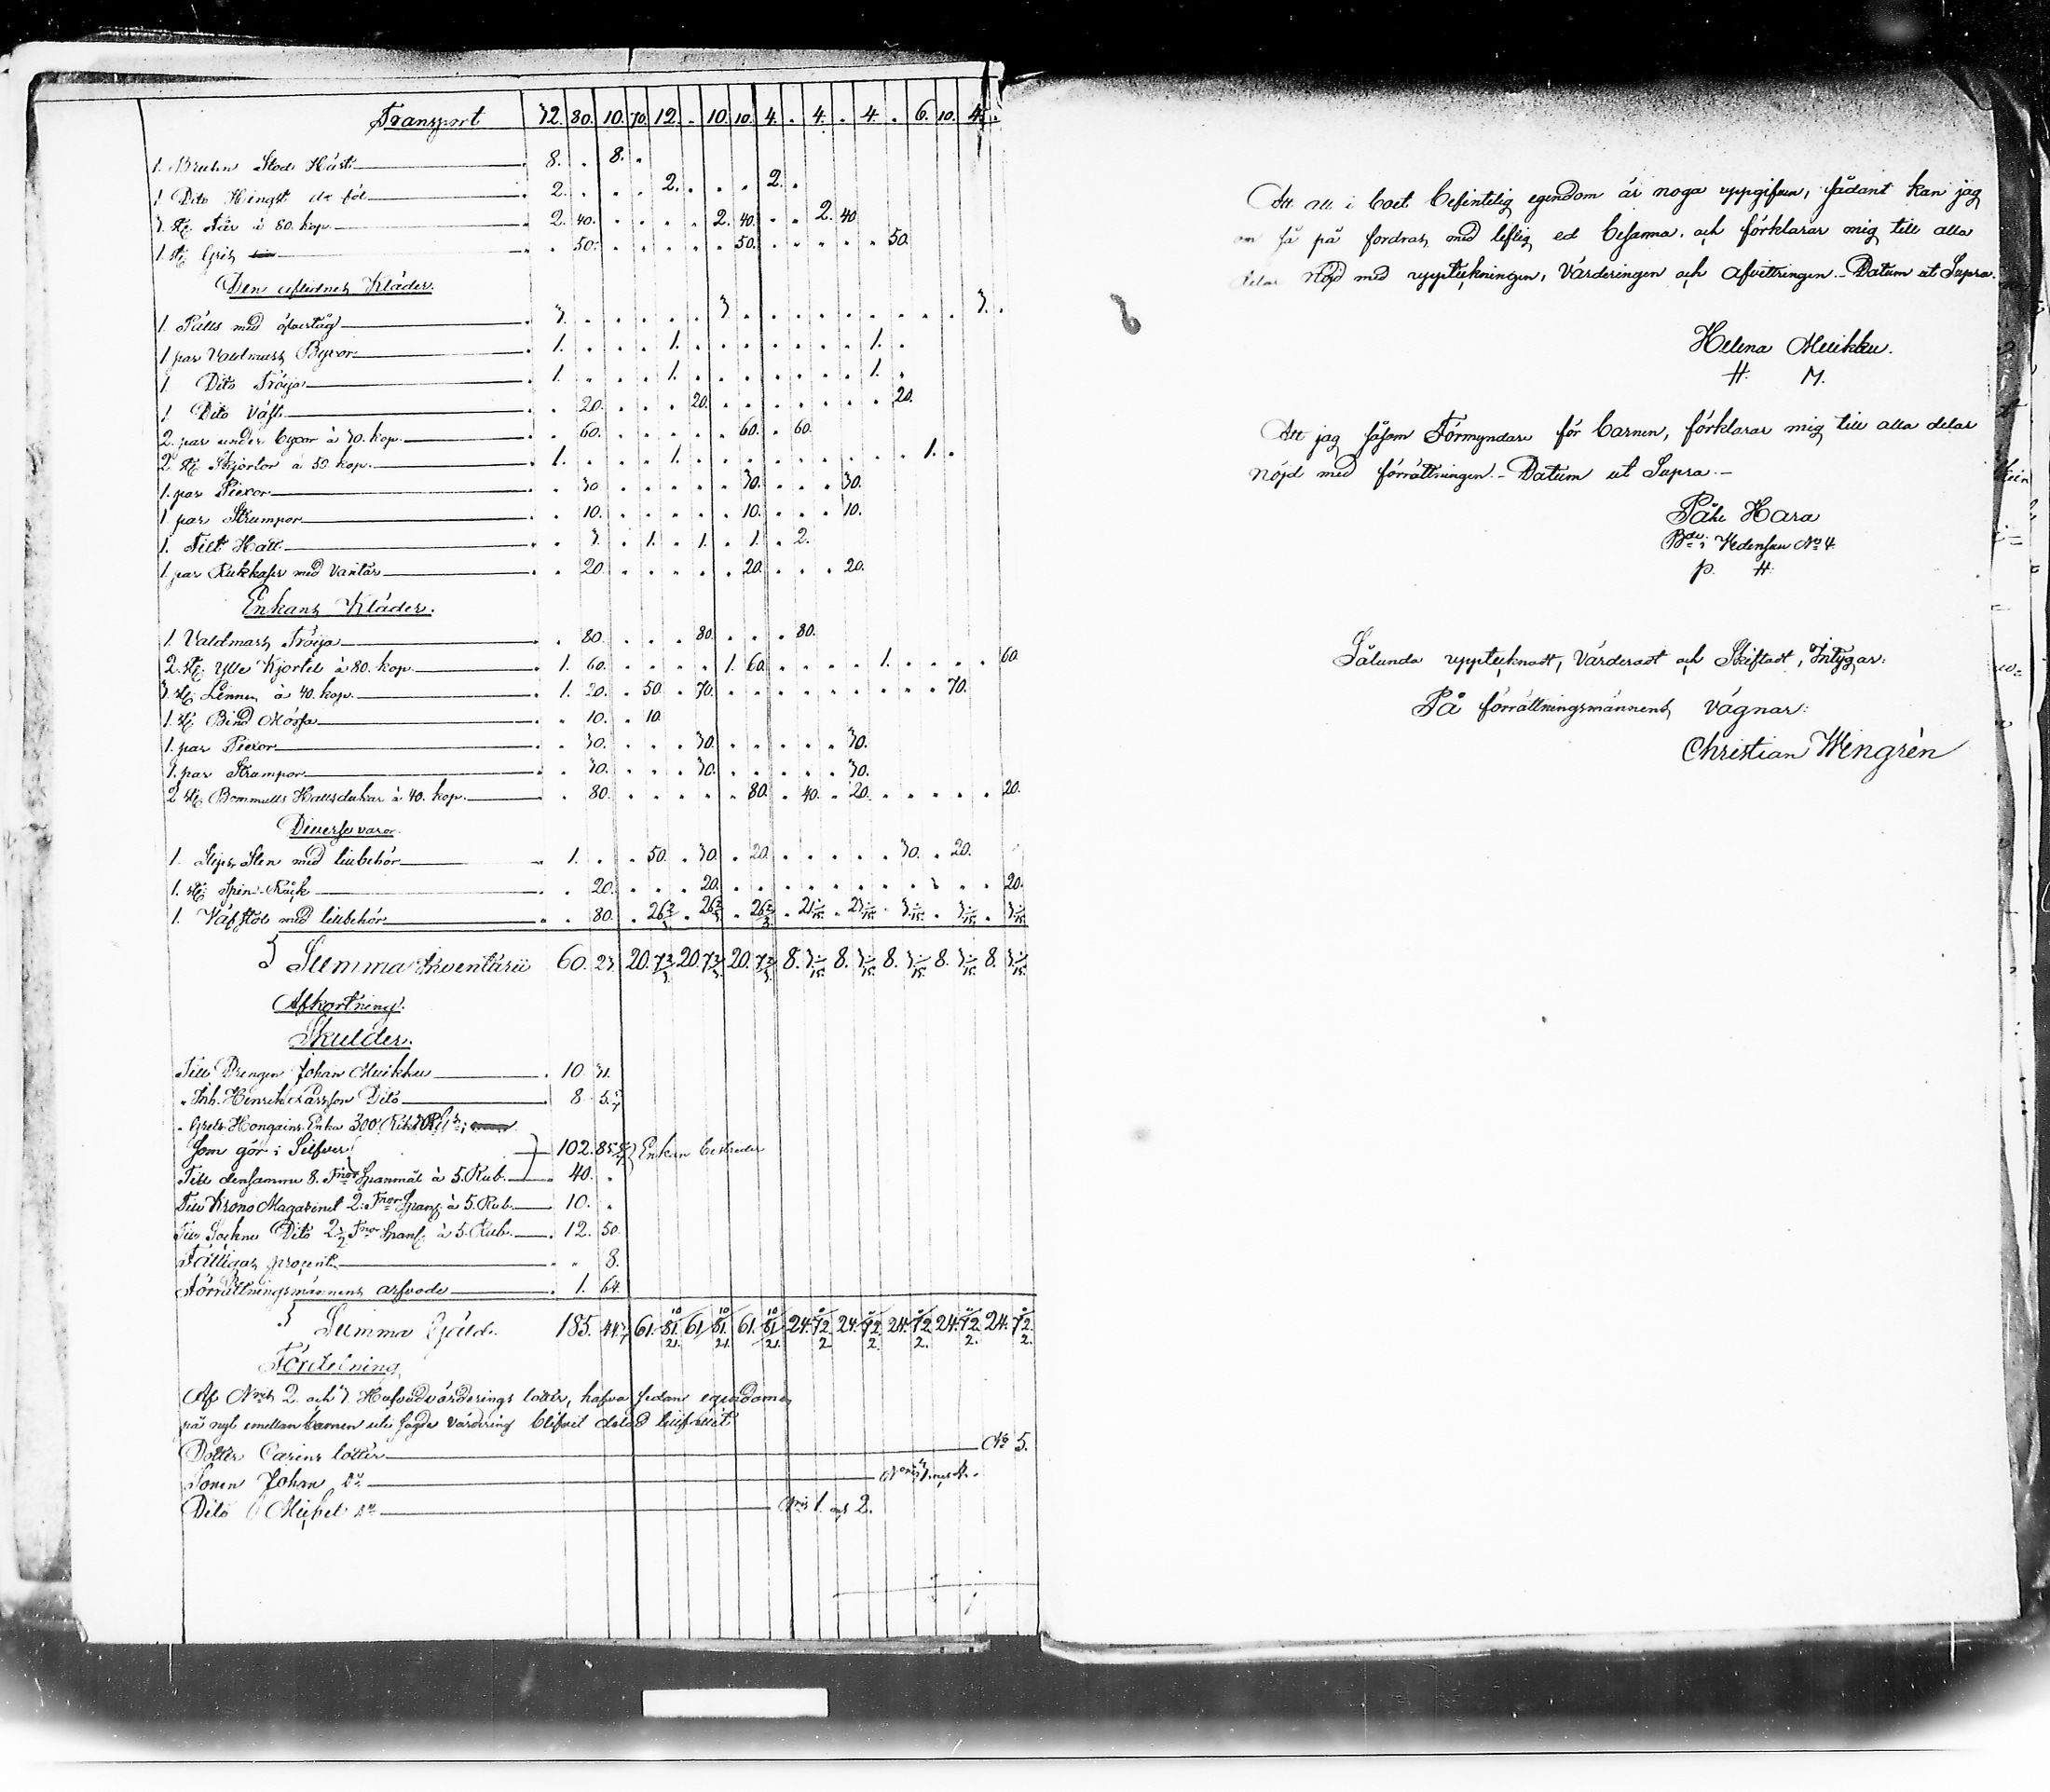 Transport 32. 80. 10. 70. 12. . 10. 10. 4. . 4. . 4. . 6. 10. 4. .
1. Bruhn Stod Häst 8. . 8. .
1 Dito Hingst d:o föl 2. . . . 2. . . . 2. .
3 st: Får à 80. kop. 2. 40. . . . . 2. 40 . . 2. 40
1. st: Gris . 50. . . . . . 50. . . . . . 50.
Den aflidnes Kläder.
1. Pälts med öfvertåg 3. . . . . . 3 . . . . . . . . . 3. .
1 par Valdmars Byxor 1. . . . 1. . . . . . . . 1. .
1 Dito Tröija 1. . . . 1. . . . . . . . 1. .
1 Dito Väst . 20. . . . 20. . . . . . . . 20.
2. par under byxor à 30. kop. . 60. . . . . . 60. . 60.
2. st: Skjortor à 50. kop. 1. . . . 1. . . . . . . . . . 1. .
1. par Piexor . 30 . . . . . 30. . . . 30.
1. par Strumpor . 10. . . . . . 10. . . . 10.
1. Filt Hatt . 3. . 1. . 1. . 1. . 2.
1. par Rukkaser med Vantar . 20 . . . . . 20. . . . 20.
Enkans Kläder.
1. Valdmars Tröija . 80. . . . 80. . . . 80.
2. st: Ylle Kjortel à 80. kop. 1. 60. . . . . 1. 60. . . . . 1. . . . . 60.
3 st: Linnen à 40. kop. 1. 20. . 50 . 70. . . . . . . . . . 70.
1. st: Bind Mössa . 10. . 10.
1. par Piexor . 30. . . . 30. . . . . . 30.
1. par Strumpor . 30. . . . 30. . . . . . 30.
2 st: Bommulls Hallsdukar à 40. kop. . 80. . . . . . 80. . 40. . 20. . . . . . 20.
Diverse varor.
1. Slip Sten med tillbehör 1. . . 50. . 30. . 20. . . . . . 30. . 20.
1. st: Spin Råck . 20. . . . 20. . . . . . . . . . . . 20.
1. Väfstol med tillbehör . 80. . 26 2/3 . 26 2/3 . 26 2/3
Summa Inventarii 60. 23. 20. 7 2/3 20. 7 2/3 20. 7 2/3 8. 3 1/15 8. 3 1/15 8. 3 1/15 8. 3 1/15 8. 3 1/15
Afkortning.
Skulder.
Till Drengen Johan Muikku 10. 31.
" Inh. Hinrik Larsson Dito 8. 5 5/7
" Grels Hongains Enka 300. Riks
Som gör i Silfver 102. 85 5/7 Enkan bestrider
Till densamma 8. T:nor Spanmål à 5. Rub. 40. .
Till Krono Magasinet 2. T:nor Spanm: à 5. Rub. 10. .
Till Sockne Dito 2 1/2 T:nor Spanm: à 5. Rub. 12. 50.
Fattigas procent . 8.
Förrättningsmännens arfvode 1. 64.
Summa Gäld. 185. 44 3/7 61. 81 10/21 61. 81 10/21 61. 81 10/21 24. 24. 24. 24. 24.
Fördelning
Af N:ris 2. och 3. Hufvudvärderings lotter, hafva sedan egendomen
på nytt emellan barnen uti sagde värdering blifvit delad tillfallit
Dotter Carins lotter N:o 5.
Sonen Johan d:o 3. och 4.
Dito Michel d:o N:ris 1. och 2.
Att all i boet befintelig egendom är noga uppgifven, sådant kan jag
om så på fordras med liflig ed besanna. och förklarar mig till alla
delar nöjd med uppteckningen, Värderingen och afvittringen. Datum ut Supra.
Helena Muikku.
H. M.
Att jag såsom Förmyndare för barnen, förklarar mig till alla delar
nöjd med förrättningen. Datum ut Supra.
Påhl Hara
B:de i Vedensuu N:o 4.
P. H.
Sålunda upptecknadt, Värderadt och Skiftadt, Intygar:
På förrättningsmännens vägnar:
Christian Wengrén